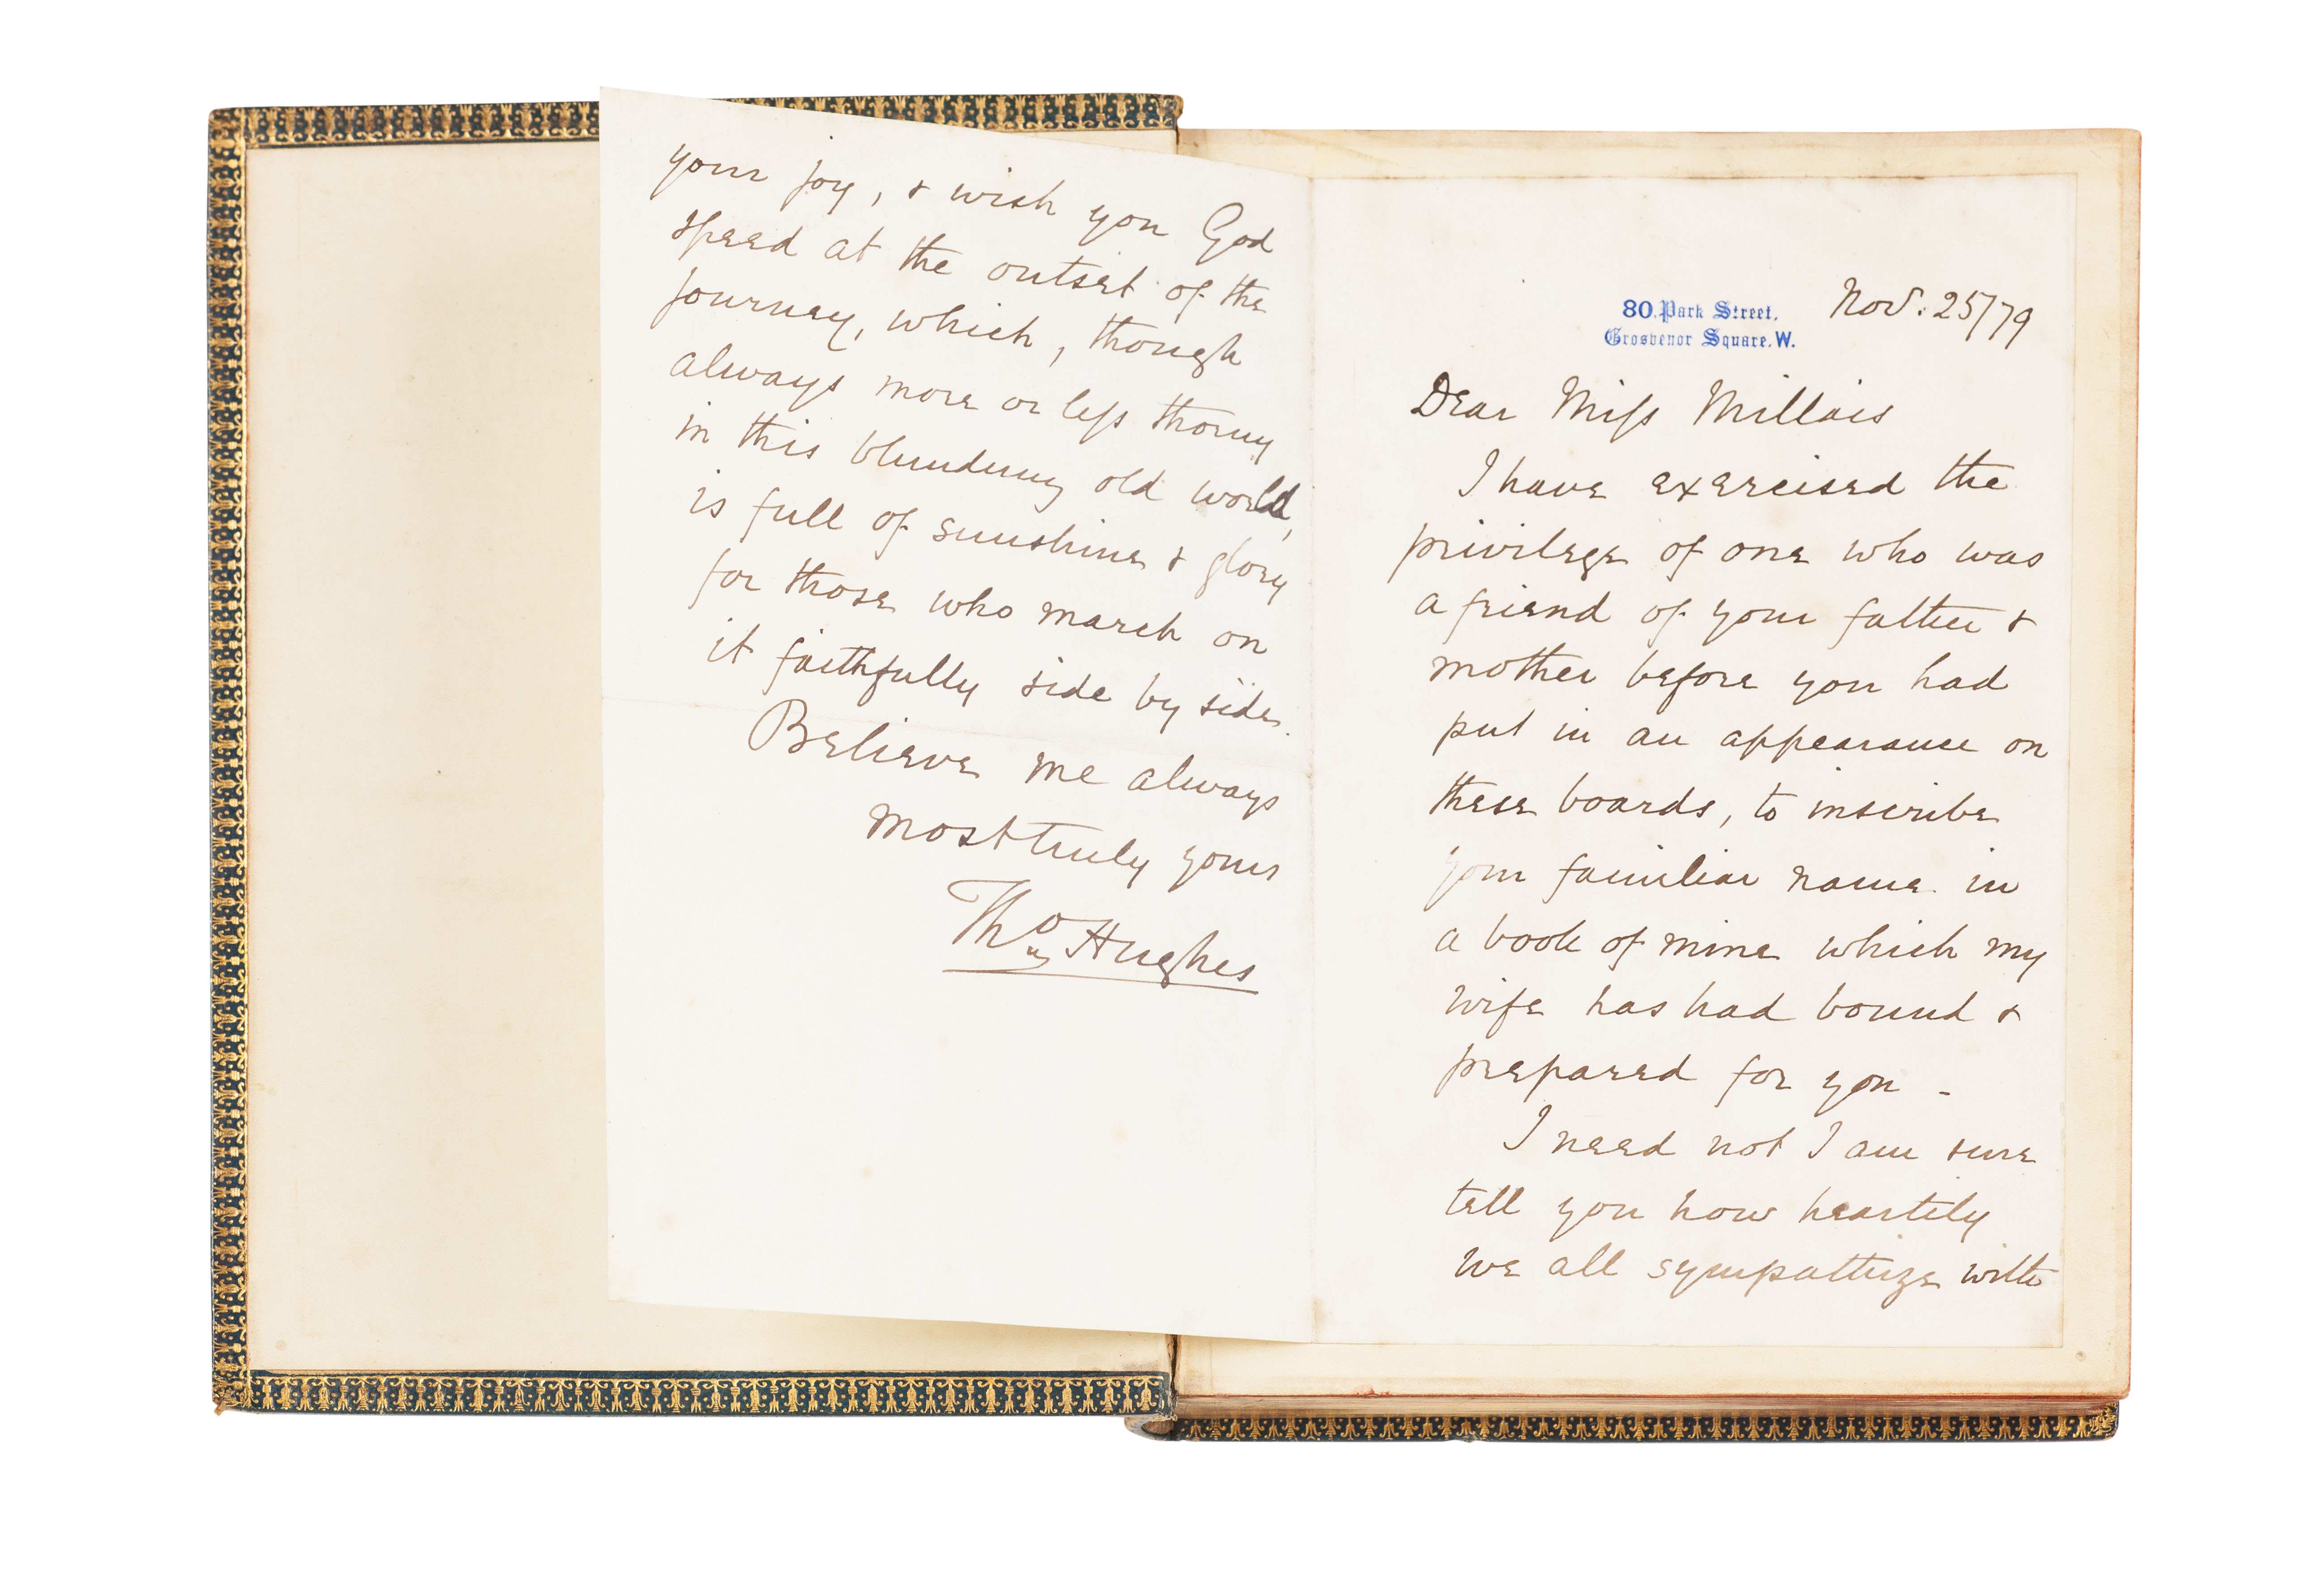 80. Park Street.
Grosvenor Square. W.
Nov. 25/79
Dear Miss Millais
I have exercised the
privilege of one who was
a friend of your father &
mother before you had
put in an appearance on
these boards, to inscribe
your familiar name in
a book of mine which my
wife has had bound &
prepared for you -
I need not I am sure
tell you how heartily
we all sympathize with
your joy, & wish you God
speed at the outset of the
journey, which, though
always more or less thorny
in this blundering old world,
is full of sunshine & glory
for those who march on
it faithfully side by side.
Believe me always
most truly yours
Thos Hughes